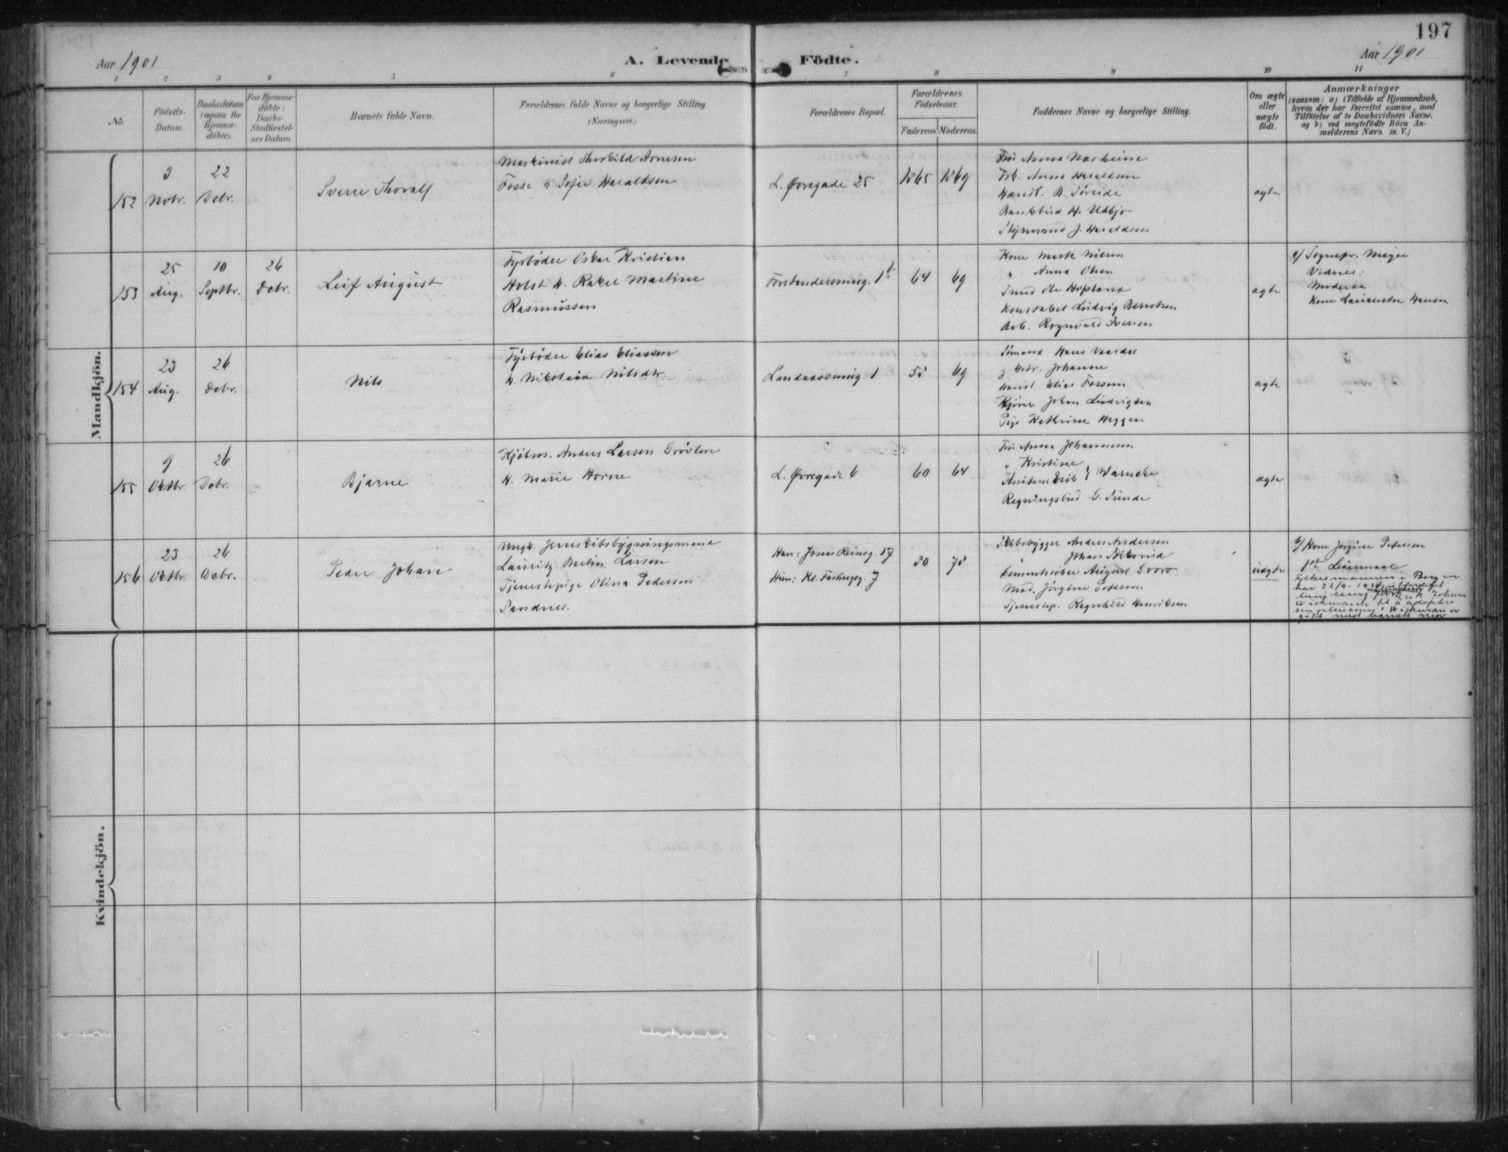 197
Aar 1901
A. Levende Födte.
Aar 1901
1 2 3 4 5 6 7 8 9 10 11
No.
Födsels-
Datum.
Daabsdatum
(ogsaa for
Hjemme-
döbte).
For Hjemme-
döbte:
Daabs-
Stadfæstel-
ses Datum.
Barnets fulde Navn.
Forældrenes fulde Navne og borgerlige Stilling.
(Næringsvei.)
Forældrenes Bopæl.
Forældrenes
Födselsaar.
Faderens.
Moderens.
Faddernes Navne og borgerlige Stilling.
Om ægte
eller
uægte
födt.
Anmærkninger
(saasom: a) i Tilfælde af Hjemmedaab,
hvem der har forrettet samme, med
Tilföielse af to Daabsvidners Navne,
og b) ved uægtefödte Börn An-
melderens Navn m. V.)
Mandkjön.
152
3
Novbr.
22
Decbr.
Sverre Thoralf
Maskinist Thorkild Arnesen
Fosse & Sofie Haraldsen
L. Øvregade 25
1865
1869
Fru Anna
Frk. Anna Haraldsen
Handl. B. Søreide
H.
Styrmand J. Haraldsen
ægte
153
25
Aug.
10
Septbr.
26
Decbr.
Leif August
Fyrbøder Oskar Kristian
Holst & Rakel Martine
Rasmussen
Forstandersmug. 1
64
69
Kone Marta Nilsen
" Anna Olsen
Smed Ole Hopland
Konstabel Ludvig Berntsen
Arb. Rognvald Iversen
ægte
a/ Sognepr. Meyer
Vidner:
Moderen
Kone Laurentse Hansen
154
23
Aug.
26
Decbr.
Nils
Fyrbøder Elias Eliassen
& Nikolaia Nilsdtr.
1
55
69
Sömand Hans
Johanne
Handl. Elias Fossum
Johan Ludvigsen
Pige Kathrine Heggen
ægte
155
9
Oktbr.
26
Decbr.
Bjarne
Anders Larsen Grövlen
& Marie Horne
L. Øvregade 6
60
64
Fru Anna Johannesen
" Kristine
Warncke
Regningsbud G. Sunde
ægte
156
23
Oktbr.
26
Decbr.
Peder Johan
Ungk. Jernskibsbygningsmand
Lauritz Martin Larsen
Tjenestepige Olina Pedersen
Sandnes.
Han: Jonas Reinsg. 17
Hun: Kl. 7
80
75
Skibsbygger Anders Andersen
Johan
August
Mad. Jörgine Petersen
Tjenestep. Ragnhild Henriksen
uægte
b/ Kone Jorgine Petersen
1ste Leiermaal
Fylkesmannen i Bergen
har 22/4 -
Johan
Wichmann til å adoptere
Wichmann er
gift med barnets mor
Kvindekjön.